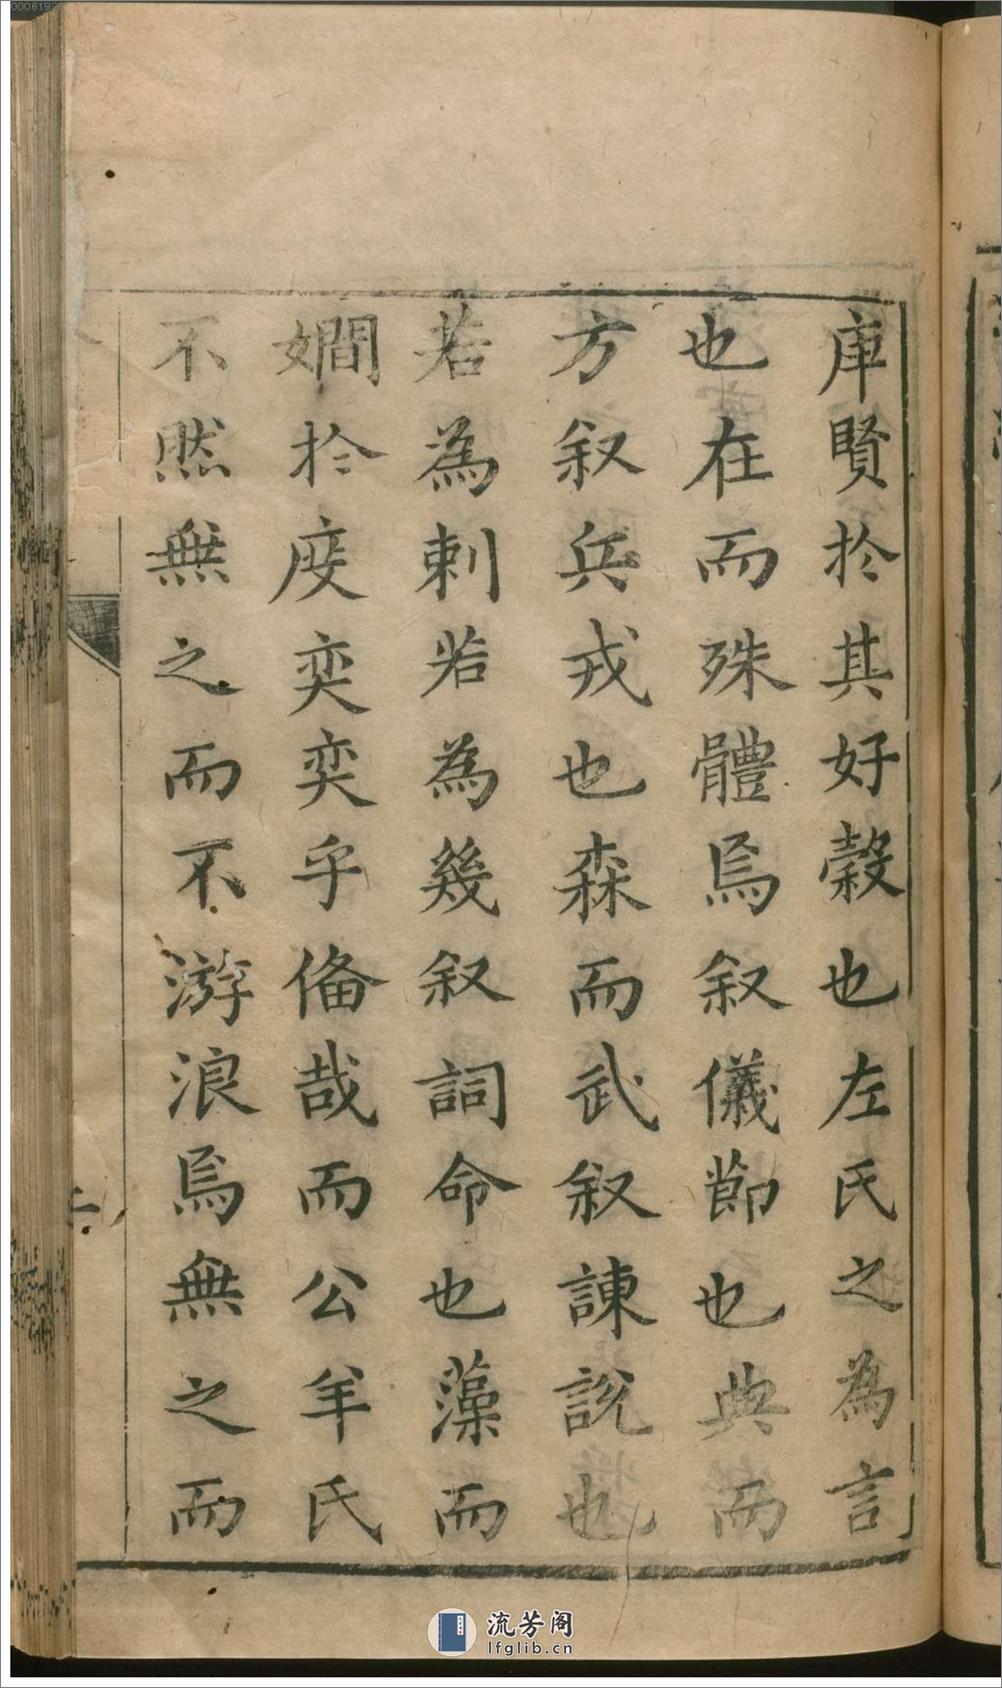 庳賢於其好穀也左氏之為言
也在而殊體焉叙儀節也典而
方叙兵戎也森而武叙諫說也
若為剌若為幾叙詞命也藻而
嫺於度奕奕乎俻哉而公羊氏
不然無之而不游浪焉無之而
流芳阁
lfglib.cn